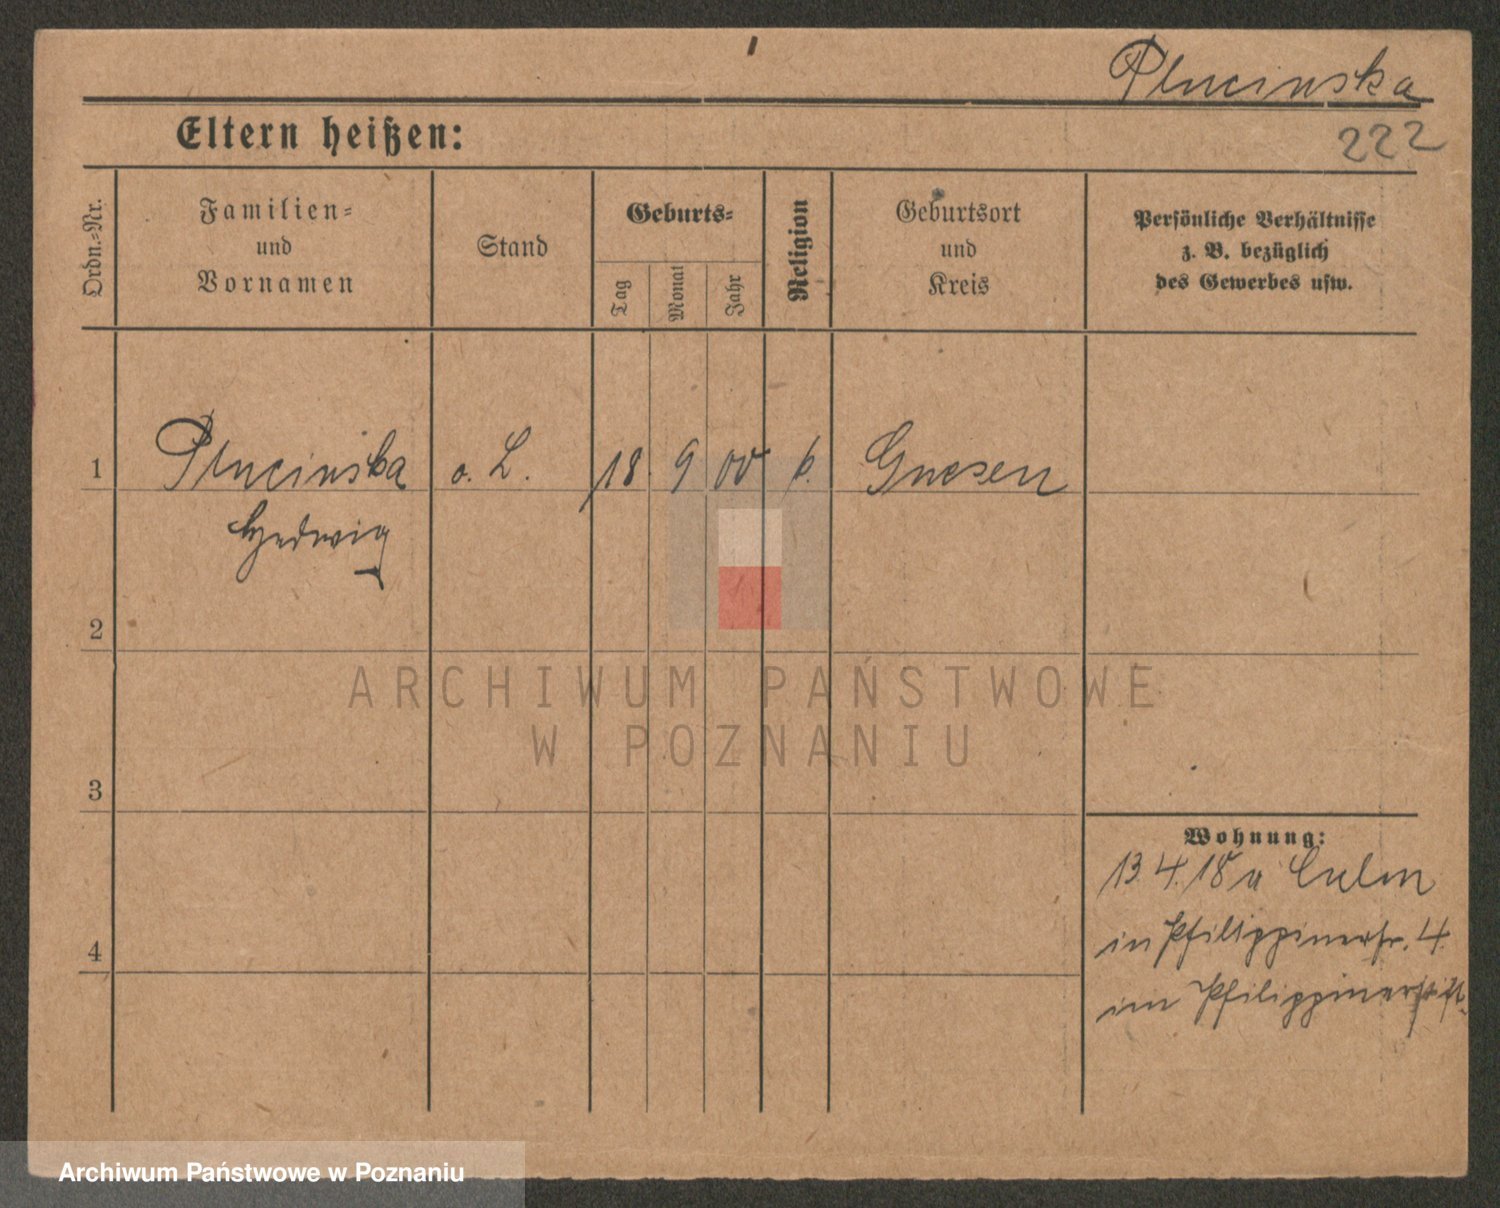 Plucinska
222
Eltern heißen:
Ordn.-Nr.
Familien-
und
Vornamen
Stand
Geburts-
Tag
Monat
Jahr
Religion
Geburtsort
und
Kreis
Persönliche Verhältnisse
z. B. bezüglich
des Gewerbes usw.
1 Plucinska o. L. 18. 9 00 k. Gnesen
Hedwig
2
3
4
Wohnung:
13. 4. 18 a Culm
in Philippinerstr. 4.
im Philippinerstift.
ARCHIWUM PAŃSTWOWE
W POZNANIU
Archiwum Państwowe w Poznaniu